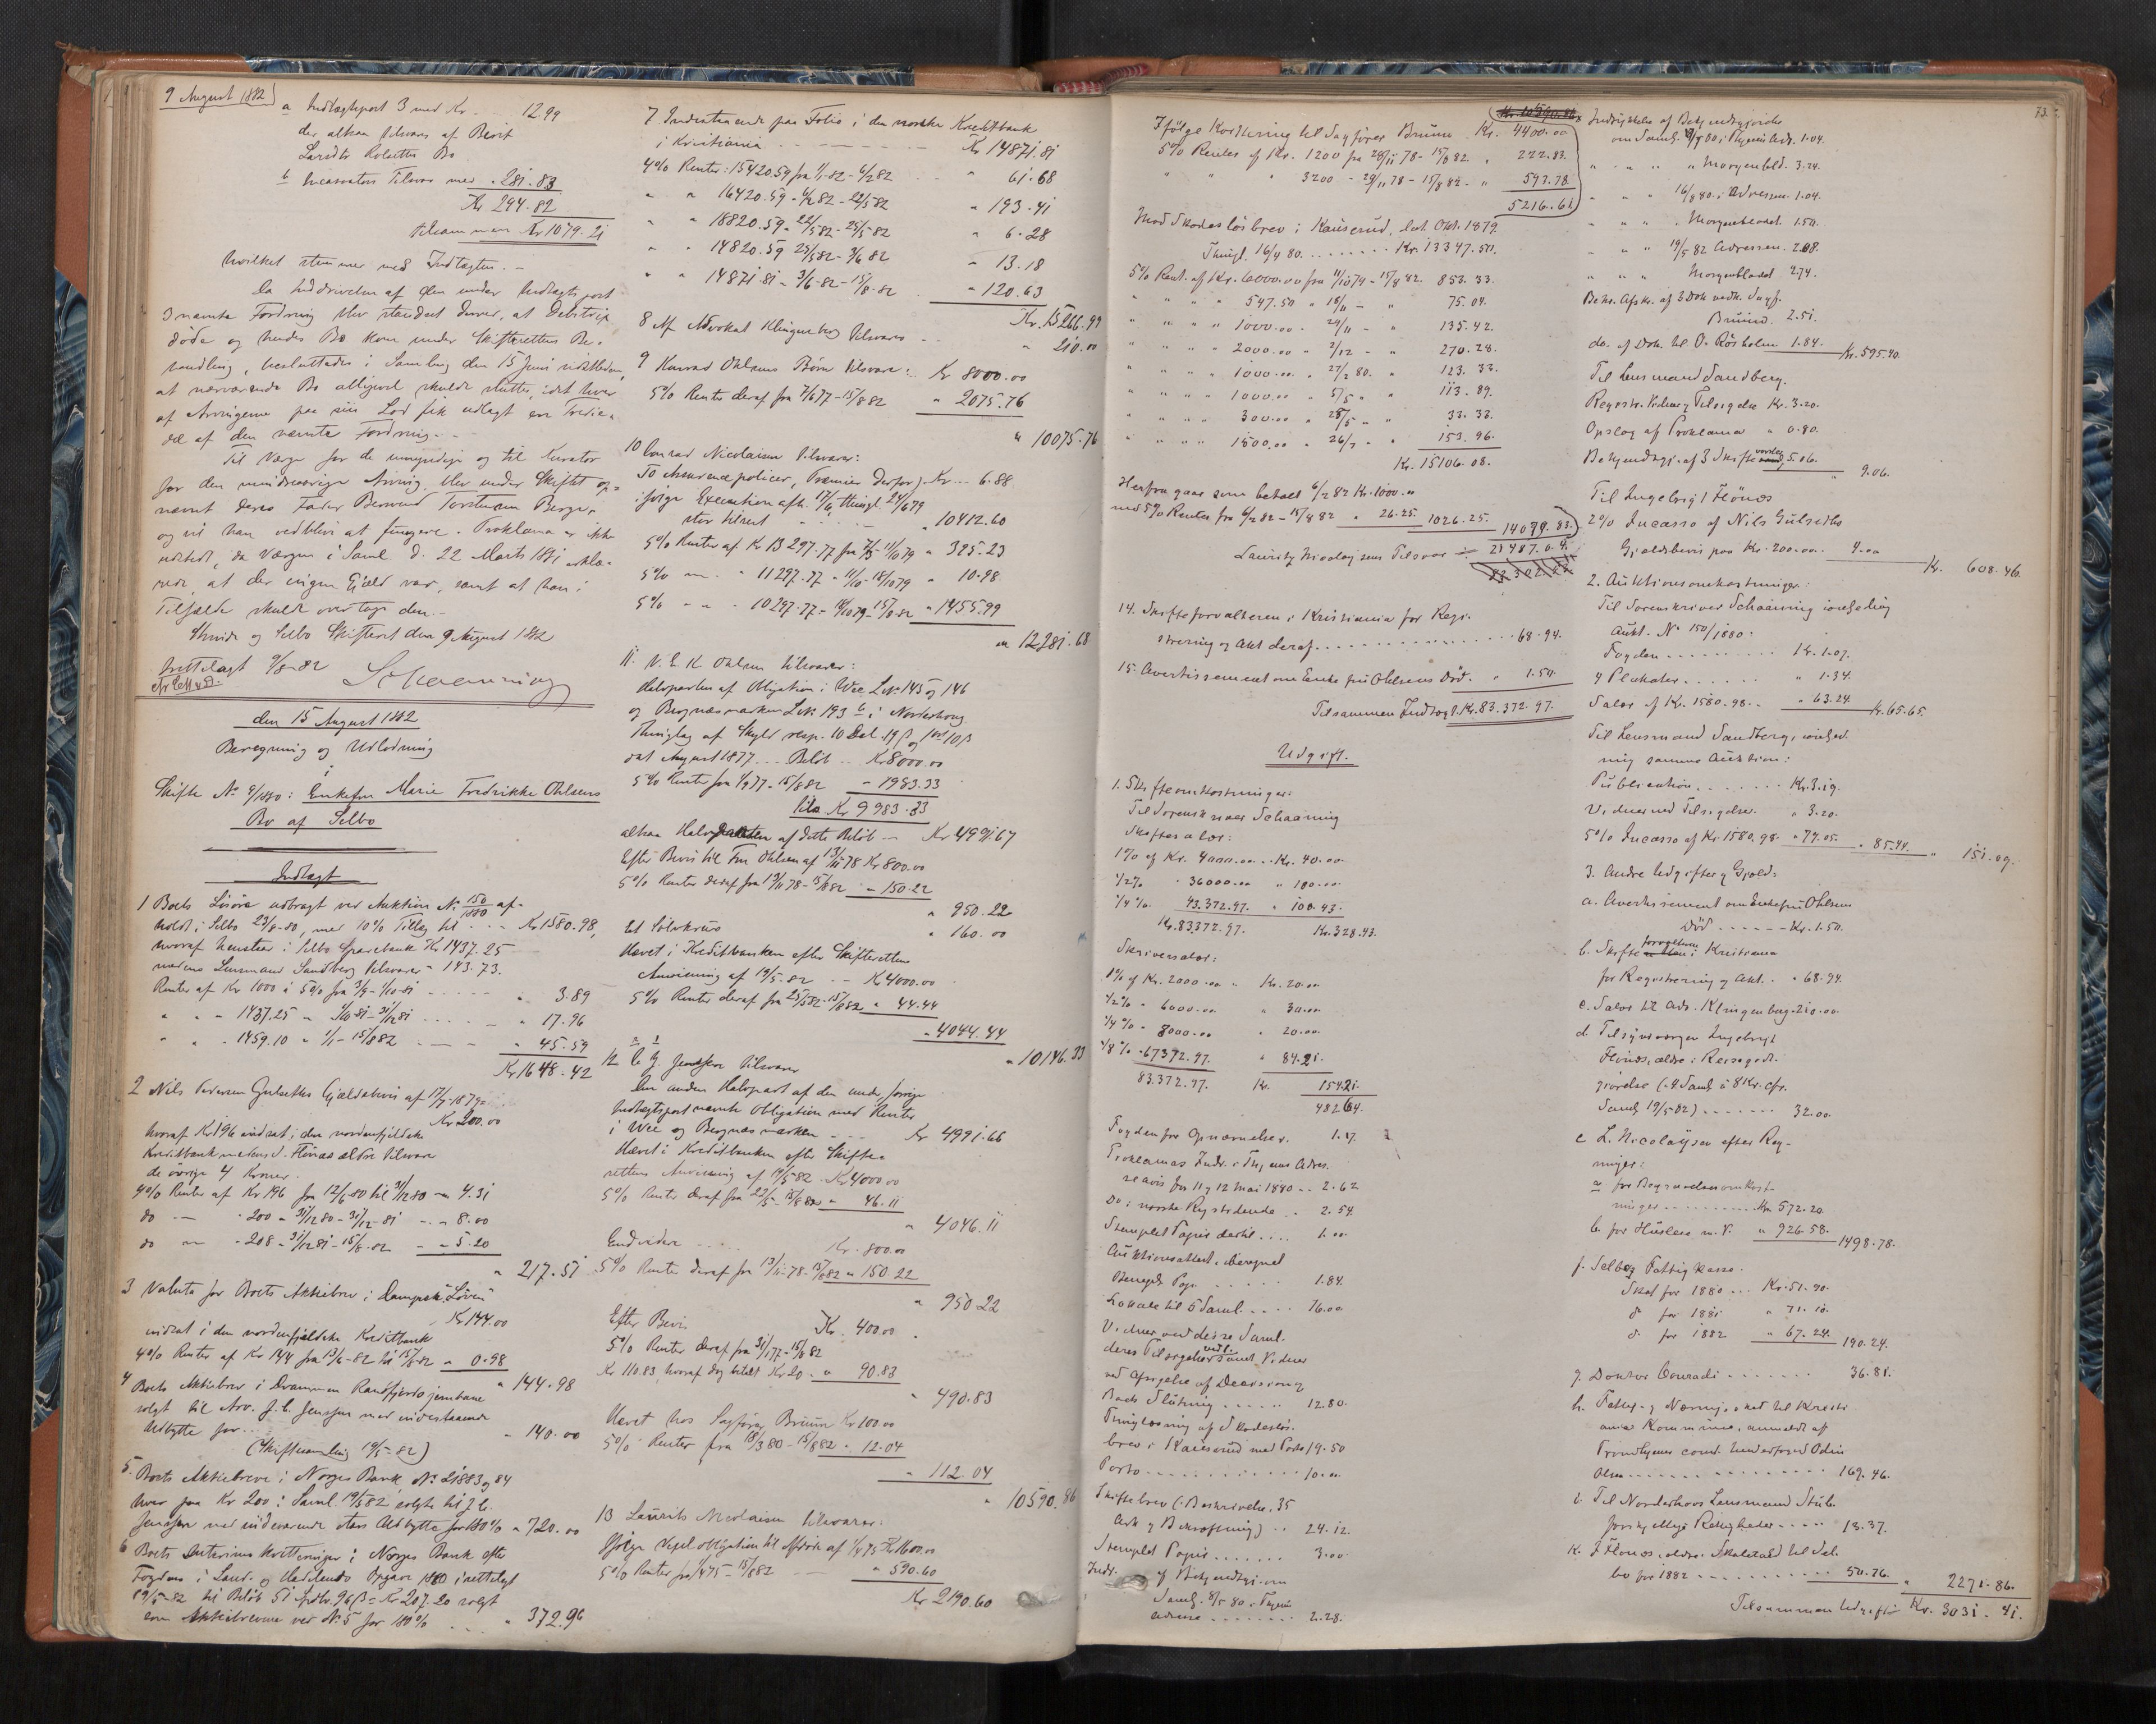 9 August 1882
a Indtægtspost 3 med Kr 12.99
der altsaa tilsvares af Berit
Larsdtr Rolsettes Bo
b Incassators Tilsvar med " 281.83
Kr 294.82
tilsammen Kr 1079.21
hvilket stemmer med Indtægten. –
Da Inddrivelsen af den under Indtægtspost
3 nævnte Fordring blev standset derved, at Debitrix
døde og hendes Bo kom under Skifterettens Be-
handling, besluttedes i Samling den 15 Juni
at nærværende Bo alligevel skulde sluttes, idet hver
af Arvingerne paa sin Lod fik udlagt en Tredie-
del af den nævnte Fordring. –
Til Værge for de umyndige og til Kurator
for den mindreaarige Arving blev under Skiftet op-
nævnt deres Fader Bernard Torstensen Berge,
og vil han vedblive at fungere. Proklama er ikke
udstedt, da Værgen i Saml. d. 22 Marts 1881 erklæ-
rede, at der ingen Gjæld var, samt at han i
Tilfælde skulde overtage den. –
Strinde og Selbo Skifteret den 9 August 1882
Schaanning
fremlagt 9/8-82
den 15 August 1882
Beregning og Udlodning
i
Skifte No 9/1880: Enkefru Marie Fredrikke Ohlsens
Bo af Selbo
Indtægt
1 Boets Løsøre udbragt ved Auktion No 150/1880 af-
holdt i Selbo 23/8-80, med 10% Tillæg til Kr 1580.98,
hvoraf henstaar i Selbo Sparebank Kr 1437.25
medens Lensmand Sandberg tilsvarer " 143.73.
Renter af Kr 1000 à 5% fra 3/9 - 1/10-81 " 3.89
" " 1437.25 " 1/10 81 - 31/12 81 " 17.96
" " 1459.10 " 1/1 - 15/8 82 " 45.59
Kr 1648.42
2 Nils Pedersen Gulseths Gjældsbevis af 17/7-1879
Kr 200.00
hvoraf Kr 196 indsat i den nordenfjeldske
Kreditbank medens I. Flönæs ældre tilsvarer
de øvrige 4 Kroner.
4% Renter af Kr 196 fra 12/6 80 til 31/12 80 " 4.31
do " 200 " 31/12 80 - 31/12-81 " 8.00
do " 208 - 31/12 81 - 15/8-82 " 5.20
" 217.51
3 Valuta for Boets Aktiebrev i Dampsk. "Løven"
Kr 144.00
indsat i den nordenfjeldske Kreditbank
4% Renter af Kr 144 fra 13/6-82 til 15/8-82 " 0.98
" 144.98
4 Boets Aktiebrev i Drammen Randsfjords jernbane
solgt til Arv. J. C. Jenssen med indestaaende
Udbytte for " 140.00
(Skiftesamling 19/5-82)
5. Boets Aktiebreve i Norges Bank, No 21883 og 84
hver paa Kr 200: Saml. 19/5 82 solgte til J. C.
Jenssen med indeværende Aars Udbytte for 180% " 720.00
6 Boets Interimskvitteringer i Norges Bank efter
Fogden i Land og Hadelands Opgave 1880 irettelagt
19/5-82 til Beløb 51 Spdlr. 96 β = Kr 207.20 solgt
som Aktiebrevene ved No 5 for 180% " 372.96
7 Indestaaende paa Folio i den norske Kreditbank
i Kristiania Kr 14871.81
4% Renter: 15420.59 fra 1/1-82 - 6/2 82 " 61.68
" " 16420.59 - 6/2 82 - 22/5 82 " 193.41
" " 18820.59 - 22/5 82 - 25/5 82 " 6.28
" " 14820.59 25/5 82 - 3/6 82 " 13.18
" " 14871.81 - 3/6-82 - 15/8-82 " 120.63
Kr. 15266.99
8 Af Advokat Klingenberg tilsvares " 210.00
9 Konrad Ohlsens Børn tilsvarer: Kr 8000.00
5% Renter deraf fra 7/6 77 - 15/8 82 " 2075.76
" 10075.76
10 Conrad Nicolaisen tilsvarer:
To Assurancepolicer, Præmier derfor) Kr 6.88
ifølge Execution afh. 17/6, thingl. 24/6 79
stor tilrest " 10412.60
5% Renter af Kr 13297.77 fra 7/5 - 11/10 79 " 325.23
5% " " 11297.77 - 11/10 - 18/10 79 " 10.98
5% " " 10297.77 - 18/10 79 - 15/8-82 " 1455.99
" 12281.68
11. N. E. K. Ohlsen tilsvarer:
Halvparten af Obligation i Wee L.No 145 og 146
og Bergnæsmarken L.No 193 b i Norderhoug
Thinglag af Skyld resp. 10 Dal. 19 β og 1 ort 10 β
dat August 1877 Beløb Kr 8000.00
5% Renter fra 1/9 77 - 15/8 82 " 1983.33
tils Kr 9983.33
altsaa Halvparten af dette Beløb Kr 4991.67
Efter Bevis til Fru Ohlsen af 13/11 78 Kr 800.00
5% Renter deraf fra 13/11 78 - 15/8 82 " 150.22
" 950.22
et Sølvkrus " 160.00
Hævet i Kreditbanken efter Skifterettens
Anvisning af 19/5-82 Kr 4000.00
5% Renter deraf fra 25/5 82 - 15/8 82 " 44.44
" 4044.44
" 10146.33
12 C. J. Jenssen tilsvarer
Den anden Halvpart af den under forrige
Indtægtspost nævnte Obligation med Renter
i Wee og Bergnæsmarken Kr 4991.66
Hævet i Kreditbanken efter Skifte-
rettens Anvisning af 19/5-82 Kr 4000.00
5% Renter deraf fra 22/5 - 15/8 82 " 46.11
" 4046.11
Endvidere Kr. 800.00
5% Renter deraf fra 13/11-78 - 15/8 82 " 150.22
" 950.22
Efter Bevis Kr. 400.00
5% Renter deraf fra 31/1 77 - 15/8 82
Kr 110.83, hvoraf dog betalt Kr 20. " 90.83
" 490.83
Hævet hos Sagfører Bruun Kr 100.00
5% Renter fra 18/3 80 - 15/8 82 " 12.04
" 112.04
" 10590.86
13 Laurits Nicolaisen tilsvarer:
Ifølge Vexelobligation til Afdøde af 1/4 75 Kr 1600.00
5% Renter fra 1/4 75 - 15/8 82 " 590.60
Kr 2190.60
73.
Kr. 10590.86
Ifølge Kvittering til Sagfører Bruun Kr. 4400.00
5% Renter af Kr. 1200 fra 28/11 78 - 15/8 82. " 222.83.
" " " 3200 - 29/11 78 - 15/8 82 - " 593.78.
5216.61
Mod Skadesløsbrev i Kauserud, dat. Okt. 1879.
Thingl. 16/4 80. Kr. 13347.50.
5% Rent. af Kr. 6000.00 fra 11/10 79 - 15/8 82. 853.33.
" " " " 547.50 " 18/11 - " 75.04.
" " " " 1000.00 - 24/11 - " 135.42.
" " " " 2000.00 " 2/12 - " 270.28.
" " " " 1000.00 " 27/2 80. " 123.33.
" " " " 1000.00 " 5/5 " " 113.89.
" " " " 300.00 " 28/5 " " 33.33.
" " " " 1500.00 " 26/7 " " 153.96.
Kr. 15106.08.
Herfra gaar som betalt 6/2 82 Kr. 1000.00
med 5% Renter fra 6/2 82 - 15/8 82 " 26.25. 1026.25. 14079.83.
Lauritz Nicolaysens Tilsvar 21487.04.
14. Skifteforvalteren i Kristiania for Regi-
strering og Akt deraf 68.94.
15. Avertissement om Enkefru Ohlsens Død. " 1.50.
Tilsammen Indtægt Kr. 83.372.97.
Udgift.
1. Skifteomkostninger:
Til Sorenskriver Schaaning
Skiftesalær:
1% af Kr. 4000.00 Kr. 40.00
1/2% " 36000.00 " 180.00
1/4% " 43.372.97. " 108.43.
Kr. 83372.97. Kr. 328.43.
Skriversalær:
1% af Kr. 2000.00 " Kr. 20.00
1/2% " 6000.00 " 30.00
1/4% " 8000.00 " 20.00
1/8% " 67372.97. " 84.21.
83.372.97. Kr. 154.21.
482.64.
Fogden for Opnævnelser. 1.07.
Proklamas Indr. i Thjems Adres-
seavis for 11 og 12 Mai 1880 2.62
Do i norske Rigstidende " 2.54.
Stemplet Papir dertil 1.00
Auktionsattest, iberegnet
Benegts Pap. 1.84.
Lokale til 5 Saml. 16.00
Vidner ved disse Saml.
deres Tilsigelser samt Vidner
ved Afsigelse af Decision og
Boets Slutning 12.80.
Tinglæsning af Skadesløs-
brev i Kauserud med Porto 19.50
Porto 10.00
Skiftebrev (: Beskrivelse, 35
Ark og Bekræftning) 24.12.
Stemplet Papir 3.00
Indr. af Bekjendtgj. om
Saml. 9/5 80 i Thjems
Adresse 2.28.
Indrykkelse af Bekjendtgjørelse
om Saml. 9/8 80 i Thjems Adr. 1.04.
" " " " Morgenbld. 3.24.
" " 16/8 80. i Adressen. 1.04.
" " " Morgenbladet 1.50.
" " 19/5 82 Adressen. 2.08.
" " " Morgenbladet 2.74.
Bekr. Afskr. af 3 Dok. vedk. Sagf.
Bruun. 2.51.
do. af Dok. til O. Rösholm 1.84. Kr. 595.40.
Til Lensmand Sandberg.
Registr. Vidner og Tilsigelse Kr. 3.20.
Opslag af Proklama " 0.80.
Bekjendtgj. af 3 Skiftesaml. 5.06.
" 9.06.
Til Ingebrigt Flönæs
2% Incasso af Nils Gulseths
Gjældsbevis paa Kr. 200.00. 4.00
Kr. 608.46.
2. Auktionsomkostninger:
Til Sorenskriver Schaaning vedkommende
Aukt. No 150/1880:
Fogden Kr. 1.07.
4 Plakater " 1.34.
Salær af Kr. 1580.98. " 63.24. Kr. 65.65.
Til Lensmand Sandberg, vedkom-
mende samme Auktion:
Publication Kr. 3.19.
Vidner med Tilsigelse. " 3.20.
5% Incasso af Kr. 1580.98. " 79.05. " 85.44. " 151.09.
3. Andre Udgifter og Gjæld:
a. Avertissement om Enkefru Ohlsens
Død Kr. 1.50.
b. Skifteforvalteren i Kristiania
for Registrering og Akt. " 68.94.
c. Salær til Adv. Klingenberg. 210.00.
d. Tilsynsværgen Ingebrigt
Flönæs, ældre i Reisegodt-
gjørelse (: 4 Saml. à 8 Kr. cfr.
Saml. 19/5-82) 32.00.
e L. Nicolaysen efter Reg-
ninger:
a for Begravelsesomkost-
ninger Kr. 572.20.
b. for Husleie m. V. " 926.58.
1498.78.
f. Selbo Fattigkasse.
Skat for 1880 Kr. 51.90.
do. for 1881 " 71.10.
do. for 1882 " 67.24. 190.24.
g. Doktor Conradi 36.81.
h. Fattig- og Næringsskat til Kristi-
ania Kommune, anmeldt af
Trondhjems const. Underfoged Odin
Olsen 169.46.
i. Til Norderhovs Lensmand Stub.
forskjellige Rettigheder 13.37.
k. I. Flönæs, ældre. Skoletold til Sel-
bo for 1882 50.76. " 2271.86.
Tilsammen Udgift Kr. 3031.41.